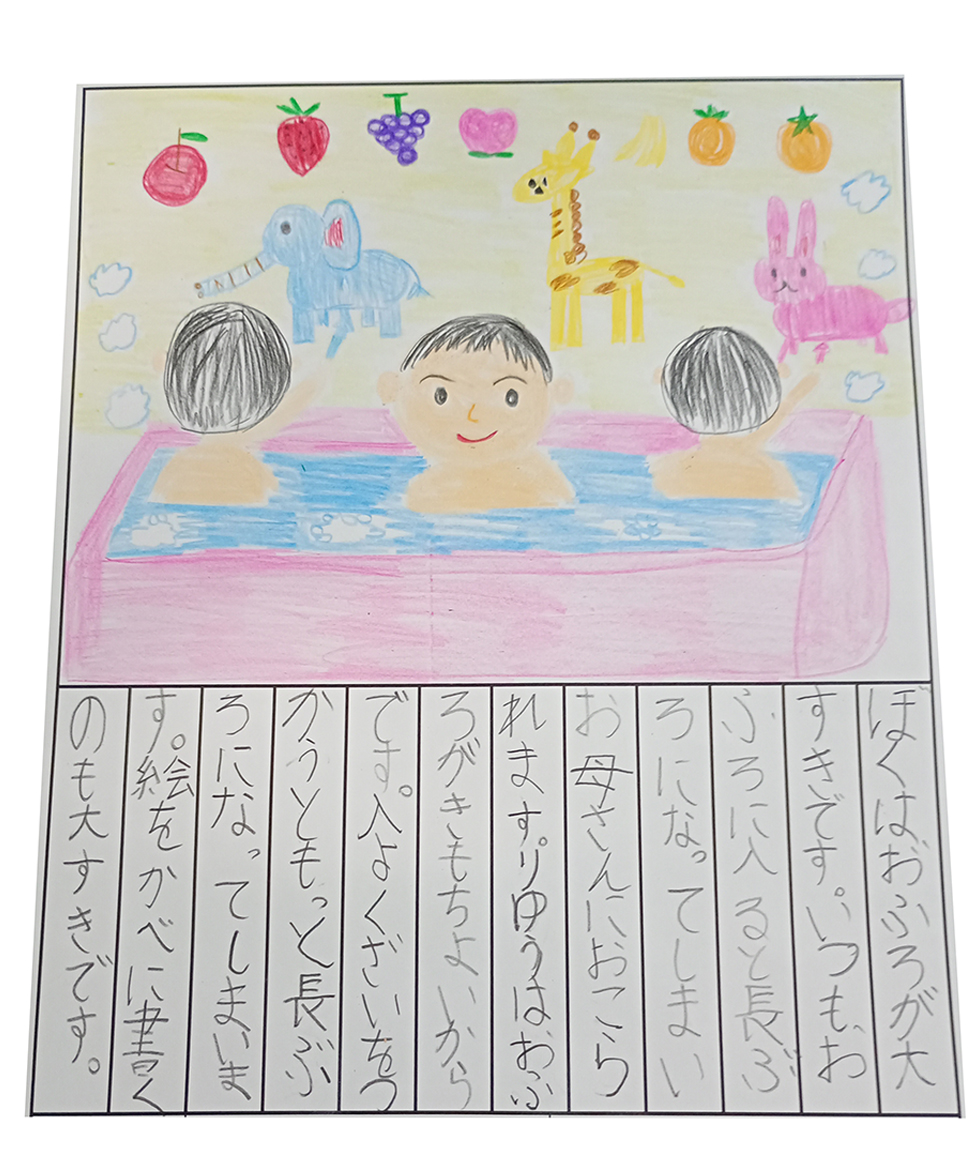 ぼくはおふろが大
すきです。いつも、お
ふろに入ると長ぶ
ろになってしまい
お母さんにおこら
れます。りゆうはおふ
ろがきもちよいから
です。入よくざいをつ
かうともっと長ぶ
ろになってしまいま
す。絵をかべに書く
のも大すきです。